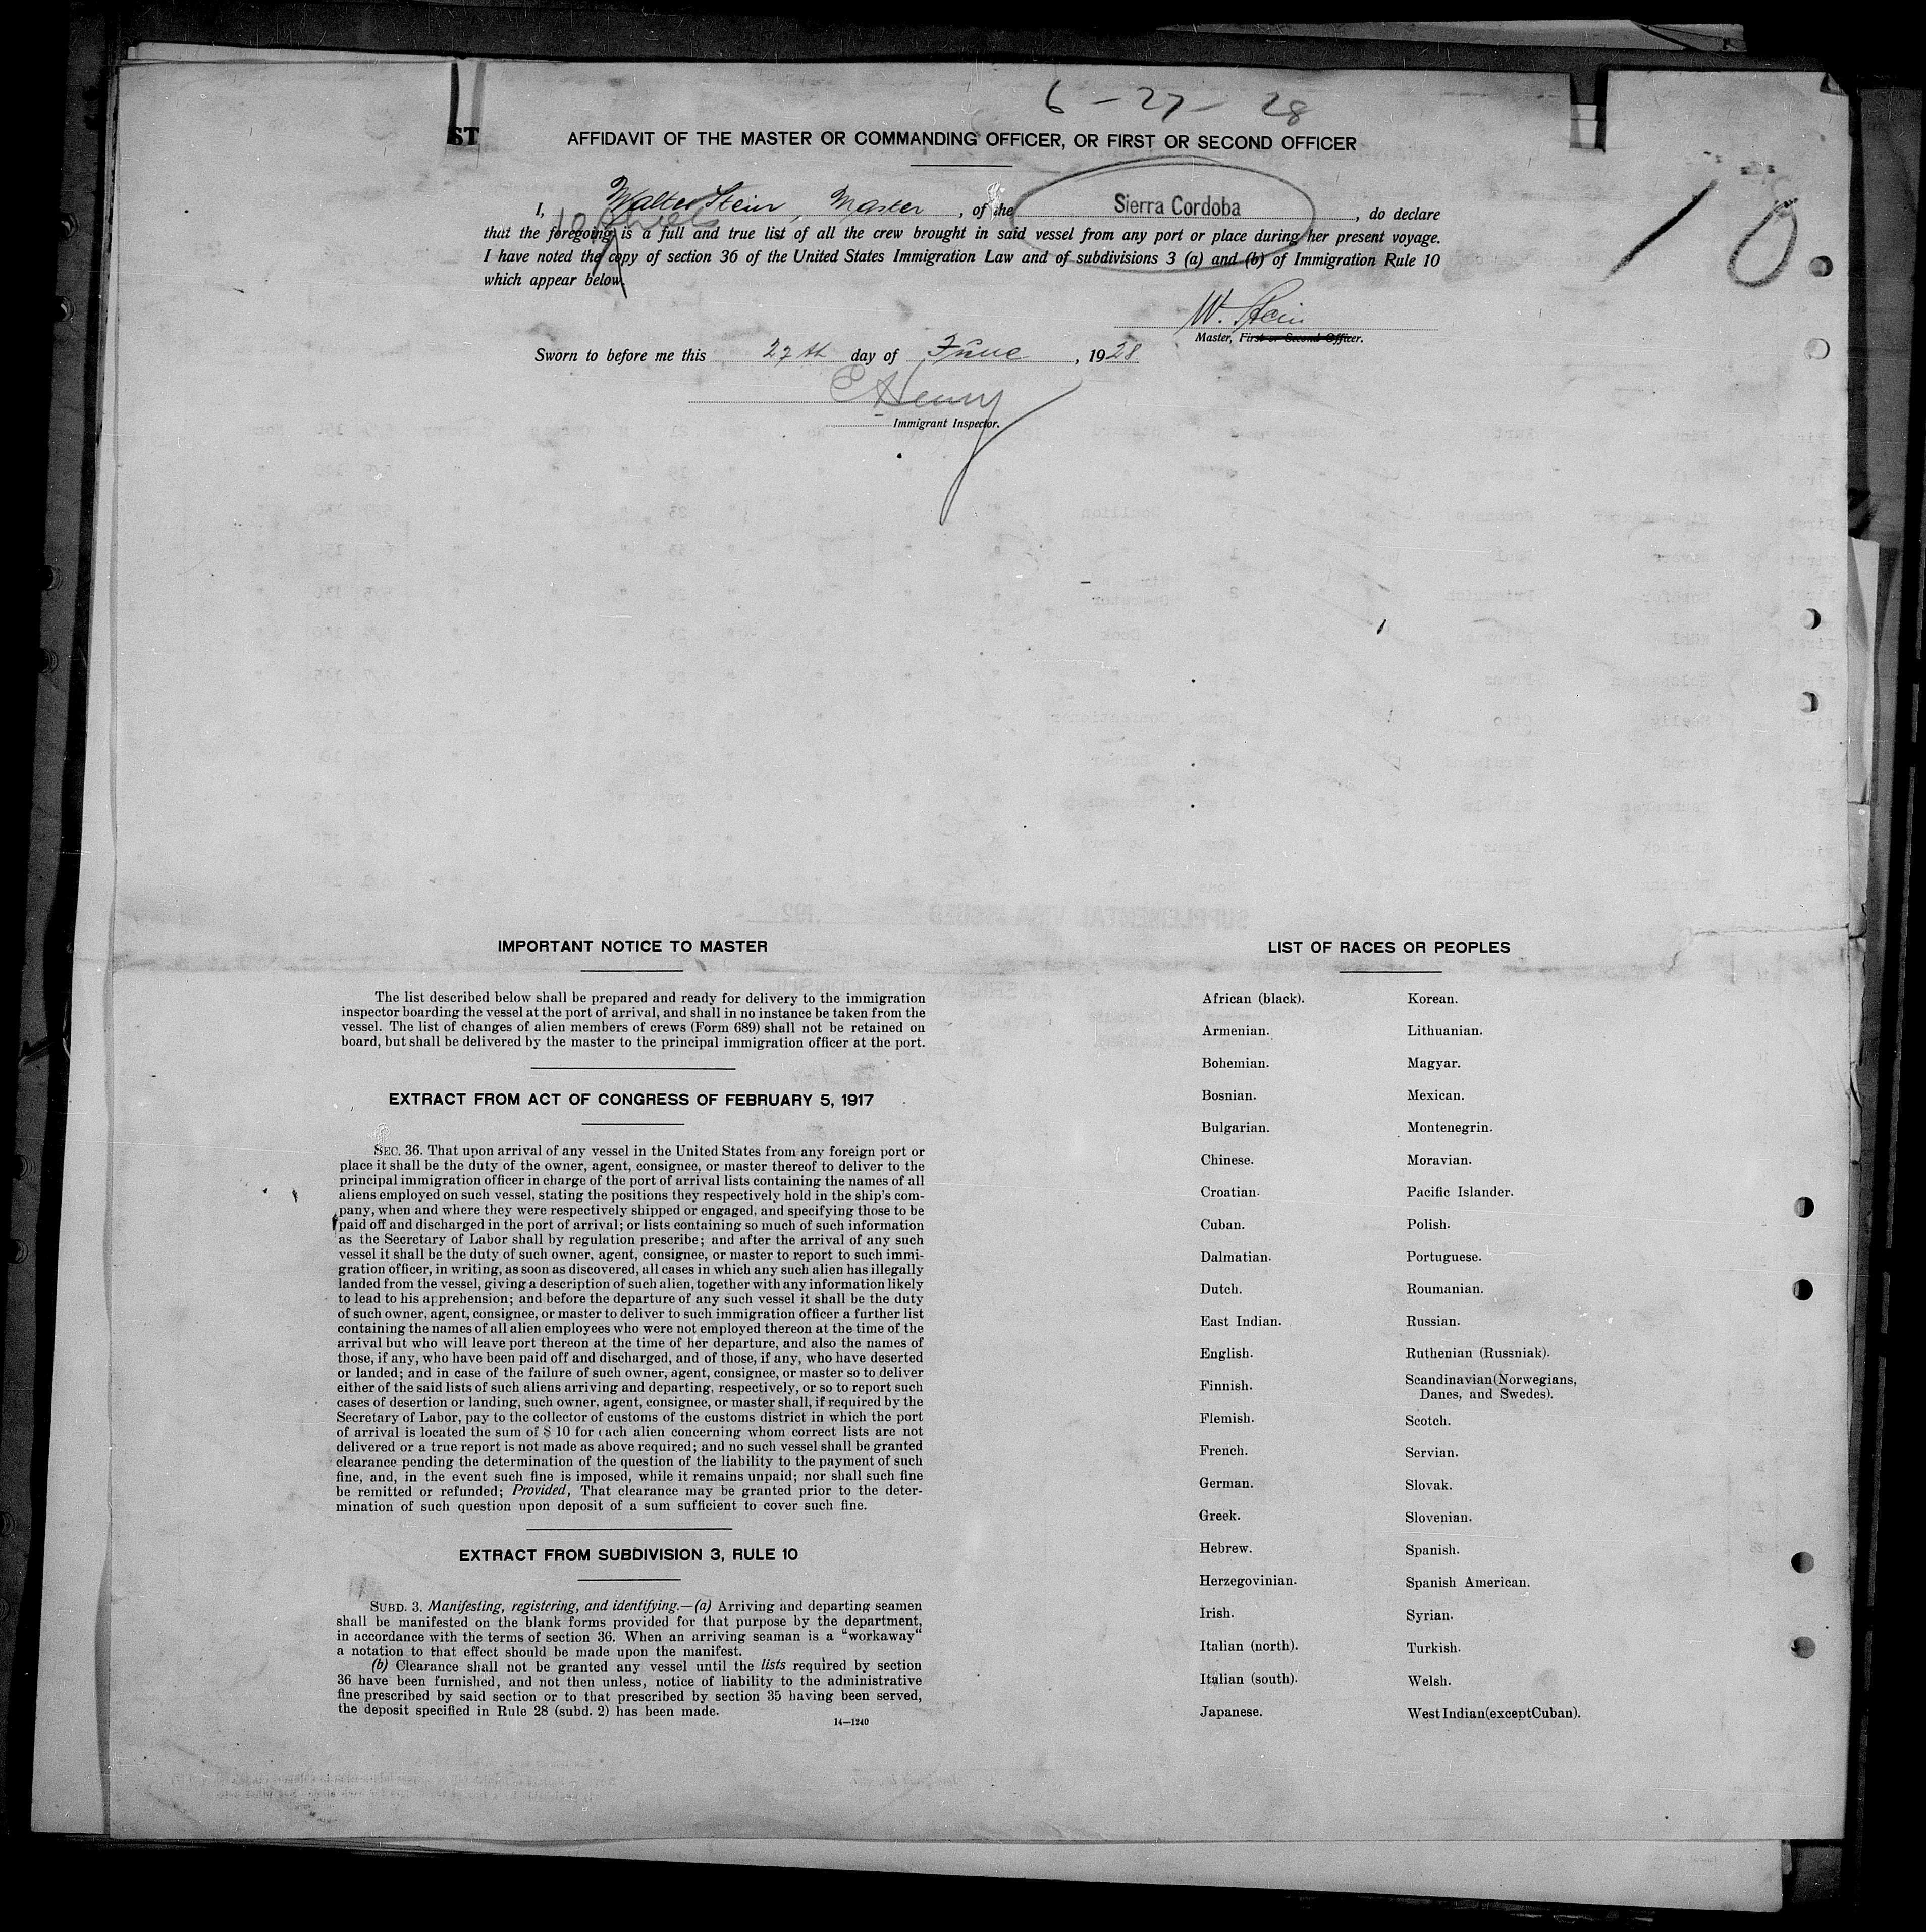 6-27-28
ST
AFFIDAVIT OF THE MASTER OR COMMANDING OFFICER, OR FIRST OR SECOND OFFICER
I, Walter Stein, Master, of the Sierra Cordoba, do declare
that the foregoing is a full and true list of all the crew brought in said vessel from any port or place during her present voyage.
I have noted the copy of section 36 of the United States Immigration Law and of subdivisions 3 (a) and (b) of Immigration Rule 10
which appear below.
10
W. Stein
Master, First or Second Officer.
Sworn to before me this 27th day of June, 1928
Henry
Immigrant Inspector.
IMPORTANT NOTICE TO MASTER
The list described below shall be prepared and ready for delivery to the immigration
inspector boarding the vessel at the port of arrival, and shall in no instance be taken from the
vessel. The list of changes of alien members of crews (Form 689) shall not be retained on
board, but shall be delivered by the master to the principal immigration officer at the port.
EXTRACT FROM ACT OF CONGRESS OF FEBRUARY 5, 1917
SEC. 36. That upon arrival of any vessel in the United States from any foreign port or
place it shall be the duty of the owner, agent, consignee, or master thereof to deliver to the
principal immigration officer in charge of the port of arrival lists containing the names of all
aliens employed on such vessel, stating the positions they respectively hold in the ship's com-
pany, when and where they were respectively shipped or engaged, and specifying those to be
paid off and discharged in the port of arrival; or lists containing so much of such information
as the Secretary of Labor shall by regulation prescribe; and after the arrival of any such
vessel it shall be the duty of such owner, agent, consignee, or master to report to such immi-
gration officer, in writing, as soon as discovered, all cases in which any such alien has illegally
landed from the vessel, giving a description of such alien, together with any information likely
to lead to his apprehension; and before the departure of any such vessel it shall be the duty
of such owner, agent, consignee, or master to deliver to such immigration officer a further list
containing the names of all alien employees who were not employed thereon at the time of the
arrival but who will leave port thereon at the time of her departure, and also the names of
those, if any, who have been paid off and discharged, and of those, if any, who have deserted
or landed; and in case of the failure of such owner, agent, consignee, or master so to deliver
either of the said lists of such aliens arriving and departing, respectively, or so to report such
cases of desertion or landing, such owner, agent, consignee, or master shall, if required by the
Secretary of Labor, pay to the collector of customs of the customs district in which the port
of arrival is located the sum of $ 10 for each alien concerning whom correct lists are not
delivered or a true report is not made as above required; and no such vessel shall be granted
clearance pending the determination of the question of the liability to the payment of such
fine, and, in the event such fine is imposed, while it remains unpaid; nor shall such fine
be remitted or refunded; Provided, That clearance may be granted prior to the deter-
mination of such question upon deposit of a sum sufficient to cover such fine.
EXTRACT FROM SUBDIVISION 3, RULE 10
SUBD. 3. Manifesting, registering, and identifying.—(a) Arriving and departing seamen
shall be manifested on the blank forms provided for that purpose by the department,
in accordance with the terms of section 36. When an arriving seaman is a "workaway"
a notation to that effect should be made upon the manifest.
(b) Clearance shall not be granted any vessel until the lists required by section
36 have been furnished, and not then unless, notice of liability to the administrative
fine prescribed by said section or to that prescribed by section 35 having been served,
the deposit specified in Rule 28 (subd. 2) has been made.
14—1240
LIST OF RACES OR PEOPLES
African (black).
Armenian.
Bohemian.
Bosnian.
Bulgarian.
Chinese.
Croatian.
Cuban.
Dalmatian.
Dutch.
East Indian.
English.
Finnish.
Flemish.
French.
German.
Greek.
Hebrew.
Herzegovinian.
Irish.
Italian (north).
Italian (south).
Japanese.
Korean.
Lithuanian.
Magyar.
Mexican.
Montenegrin.
Moravian.
Pacific Islander.
Polish.
Portuguese.
Roumanian.
Russian.
Ruthenian (Russniak).
Scandinavian(Norwegians,
Danes, and Swedes).
Scotch.
Servian.
Slovak.
Slovenian.
Spanish.
Spanish American.
Syrian.
Turkish.
Welsh.
West Indian(exceptCuban).